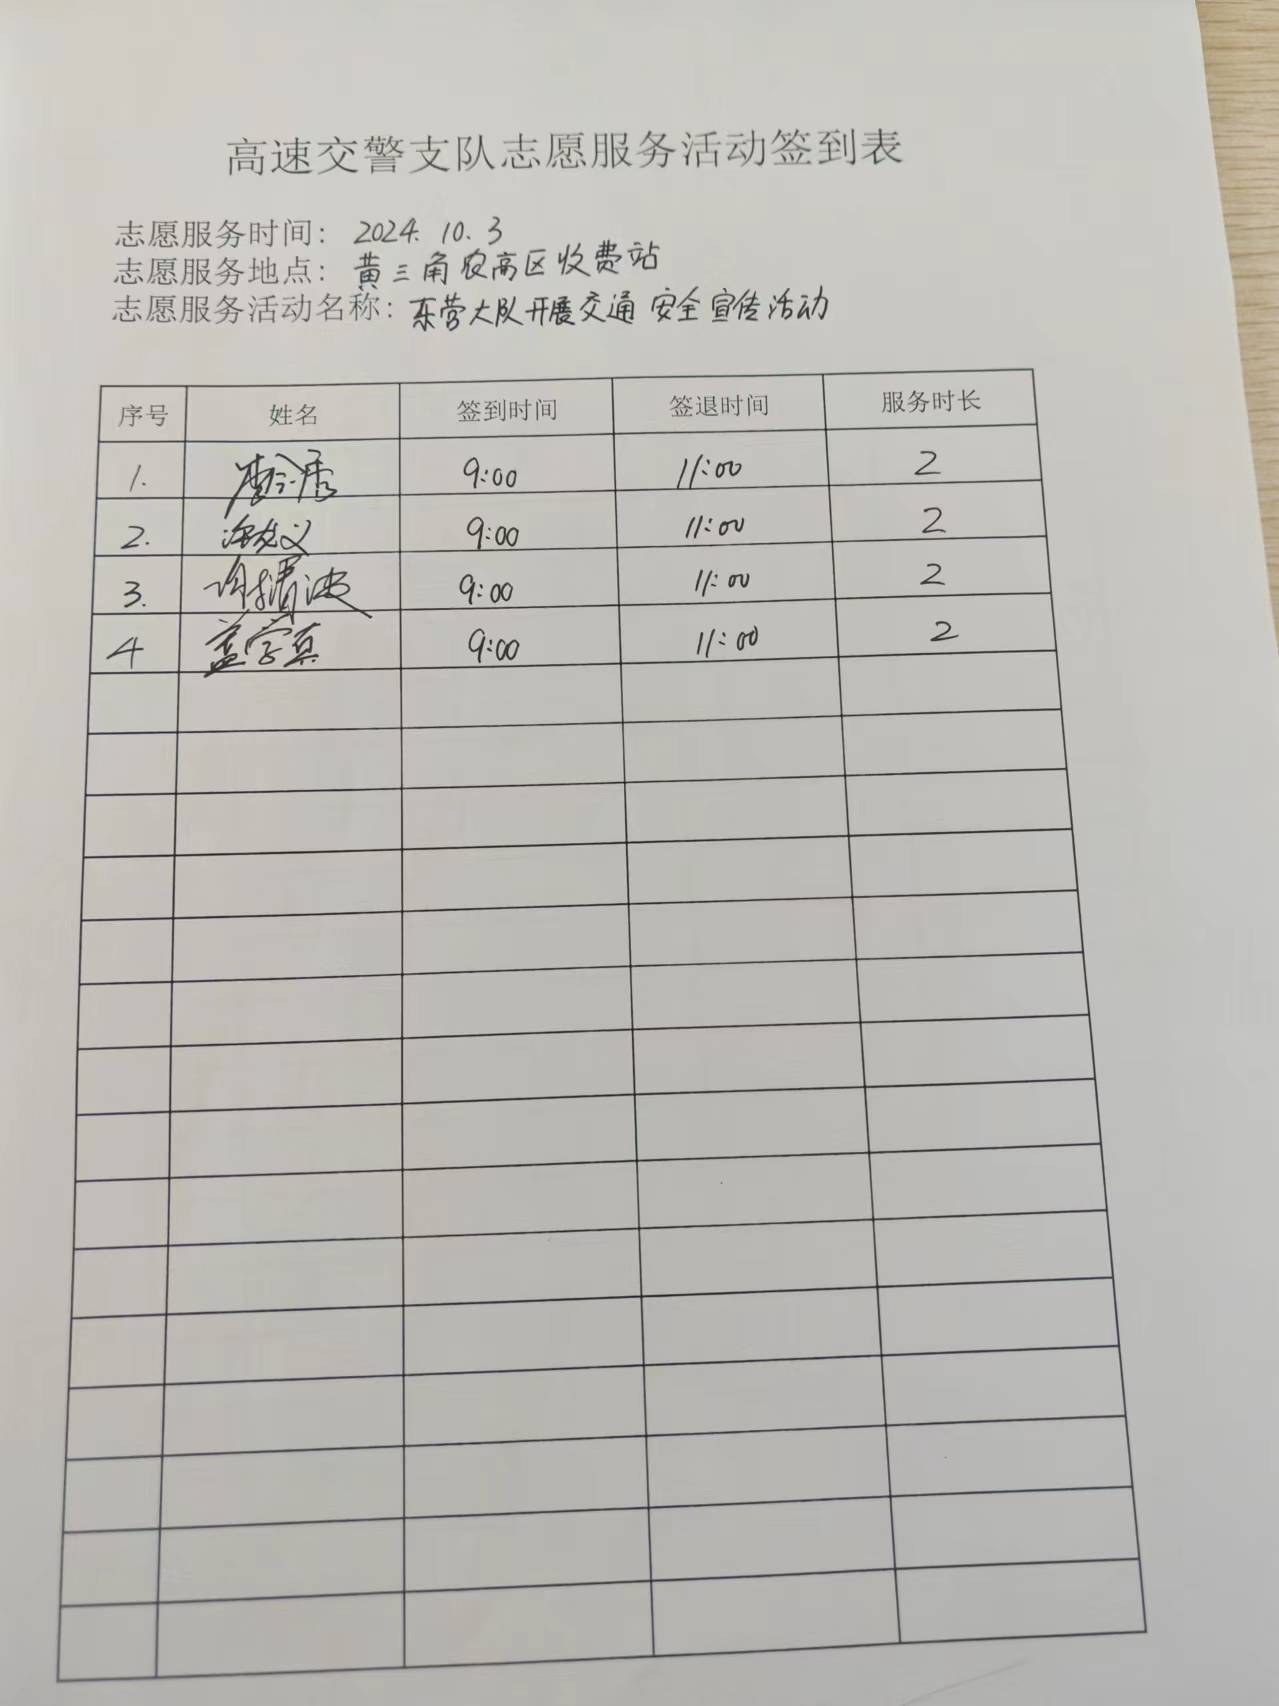 高速交警支队志愿服务活动签到表
志愿服务时间: 2024.10.3
志愿服务地点: 黄三角农高区收费站
志愿服务活动名称: 东营大队开展交通安全宣传活动
序号 姓名 签到时间 签退时间 服务时长
1. 9:00 11:00 2
2. 9:00 11:00 2
3. 9:00 11:00 2
4 盖学真 9:00 11:00 2